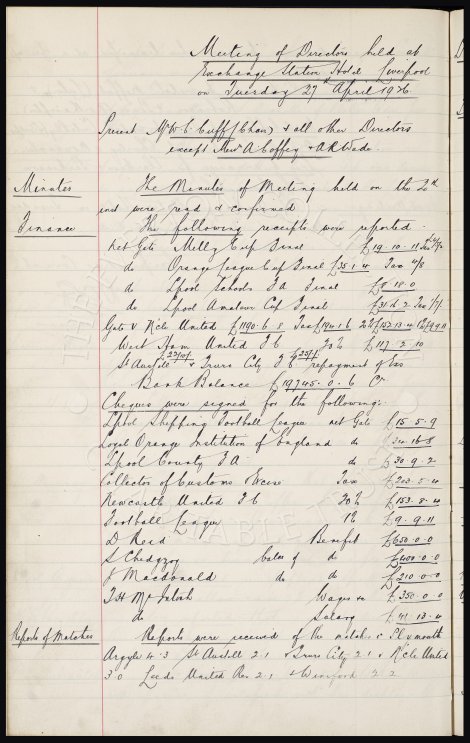 Meeting of Directors held at
Exchange Station Hotel Liverpool
on Tuesday 27 April 1926.
Present Mr W. C. Cuff (Chair) & all other Directors
except Messrs A Coffey & A R Wade.
Minutes
The Minutes of Meeting held on the 20th
inst were read & confirmed
Finance
The following receipts were reported.
Net Gate Melly Cup Final £19.10.11
do Orange League Cup Final £35.1.4 Tax 4/8
do Lpool Schools F A Final £8.18.0
do Lpool Amateur Cup Final £31.6.2 Tax
Gate v Ncle United £1190.6.8 Tax £194.1.6
West Ham United F C 20% £117.2.10
St Austell & Truro City F C repayment of Exs
Bank Balance £19745.0.6 Cr
Cheques were signed for the following:-
Lpool Shipping Football League net Gate £15.5.9
Loyal Orange Institution of England do £34.16.8
Lpool County F A do £30.9.2
Collector of Customs & Excise Tax £203.5.4
Newcastle United F C 20% £153.8.4
Football League 1% £9.9.11
D Reid Benefit £650.0.0
S Chedgzoy balce of do £400.0.0
J Macdonald do do £210.0.0
T H McIntosh Wages &c £350.0.0
do Salary £41.13.4
Reports of Matches
Reports were received of the matches v Plymouth
Argyle 4.3 St Austell 2.1 & Truro City 2.1 v Ncle United
3.0 Leeds United Res 2.1 & Winsford 2.2